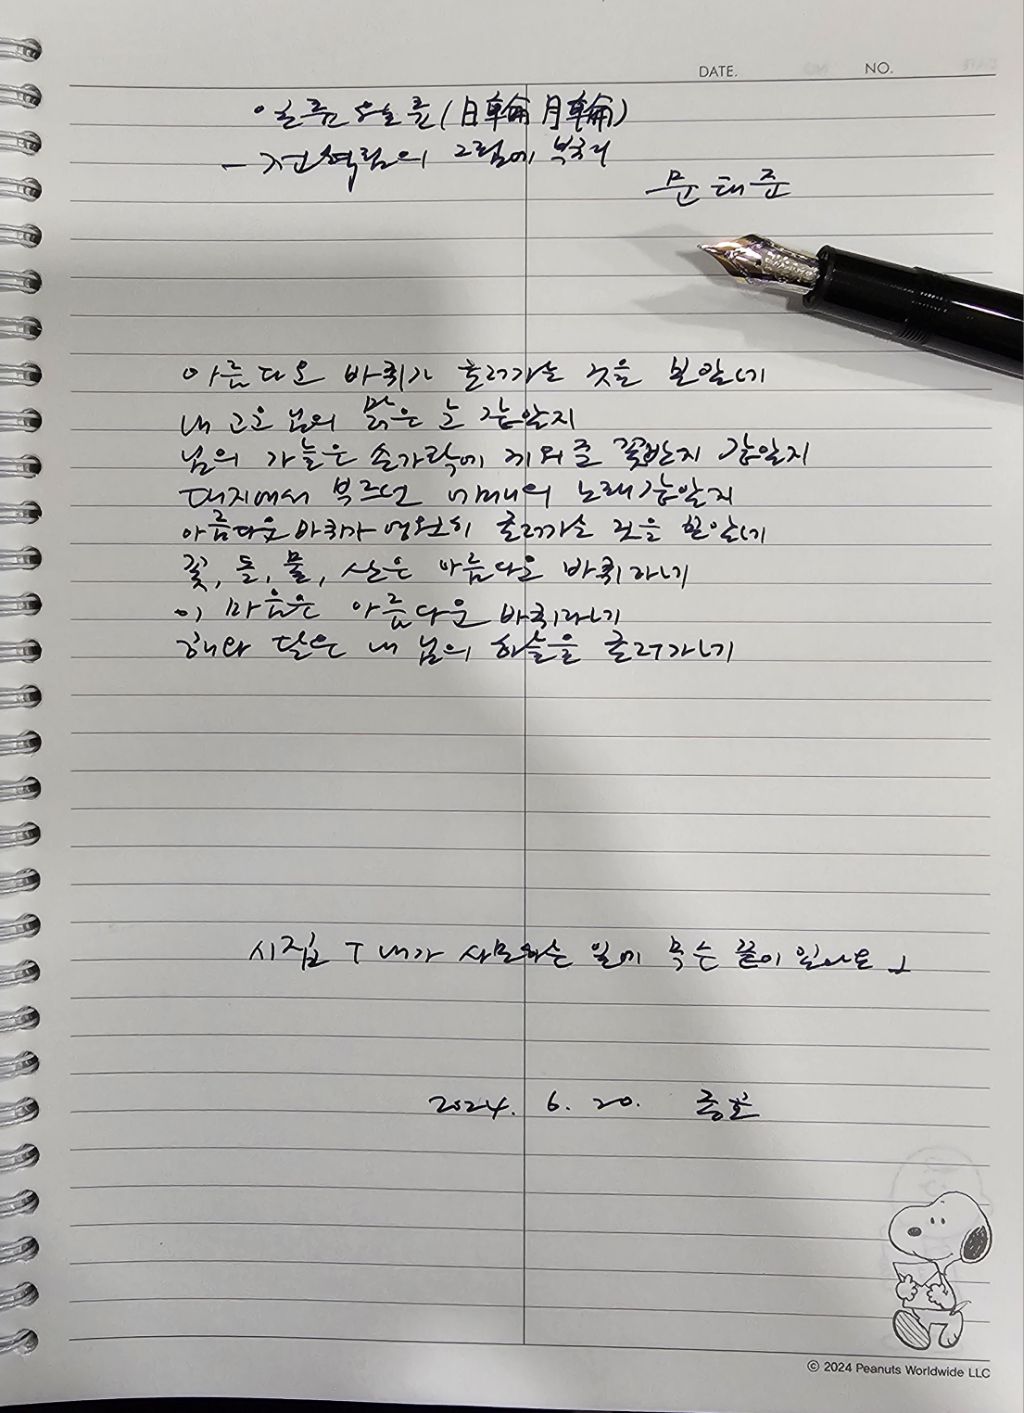 DATE. NO.
일륜월륜(日輪月輪)
- 전혁림의 그림에 부쳐
문태준
아름다운 바퀴가 굴러가는 것을 보았네
내 고운 님의 맑은 눈 같았지
님의 가늘은 손가락에 끼워준 꽃반지 같았지
대지에서 부르던 어머니의 노래 같았지
아름다운 바퀴가 영원히 굴러가는 것을 보았네
꽃, 돌, 물, 산은 아름다운 바퀴라네
이 마음은 아름다운 바퀴라네
해와 달은 내 님의 하늘을 굴러가네
시집 「내가 사모하는 일에 무슨 끝이 있나요」
2024. 6. 20.
© 2024 Peanuts Worldwide LLC